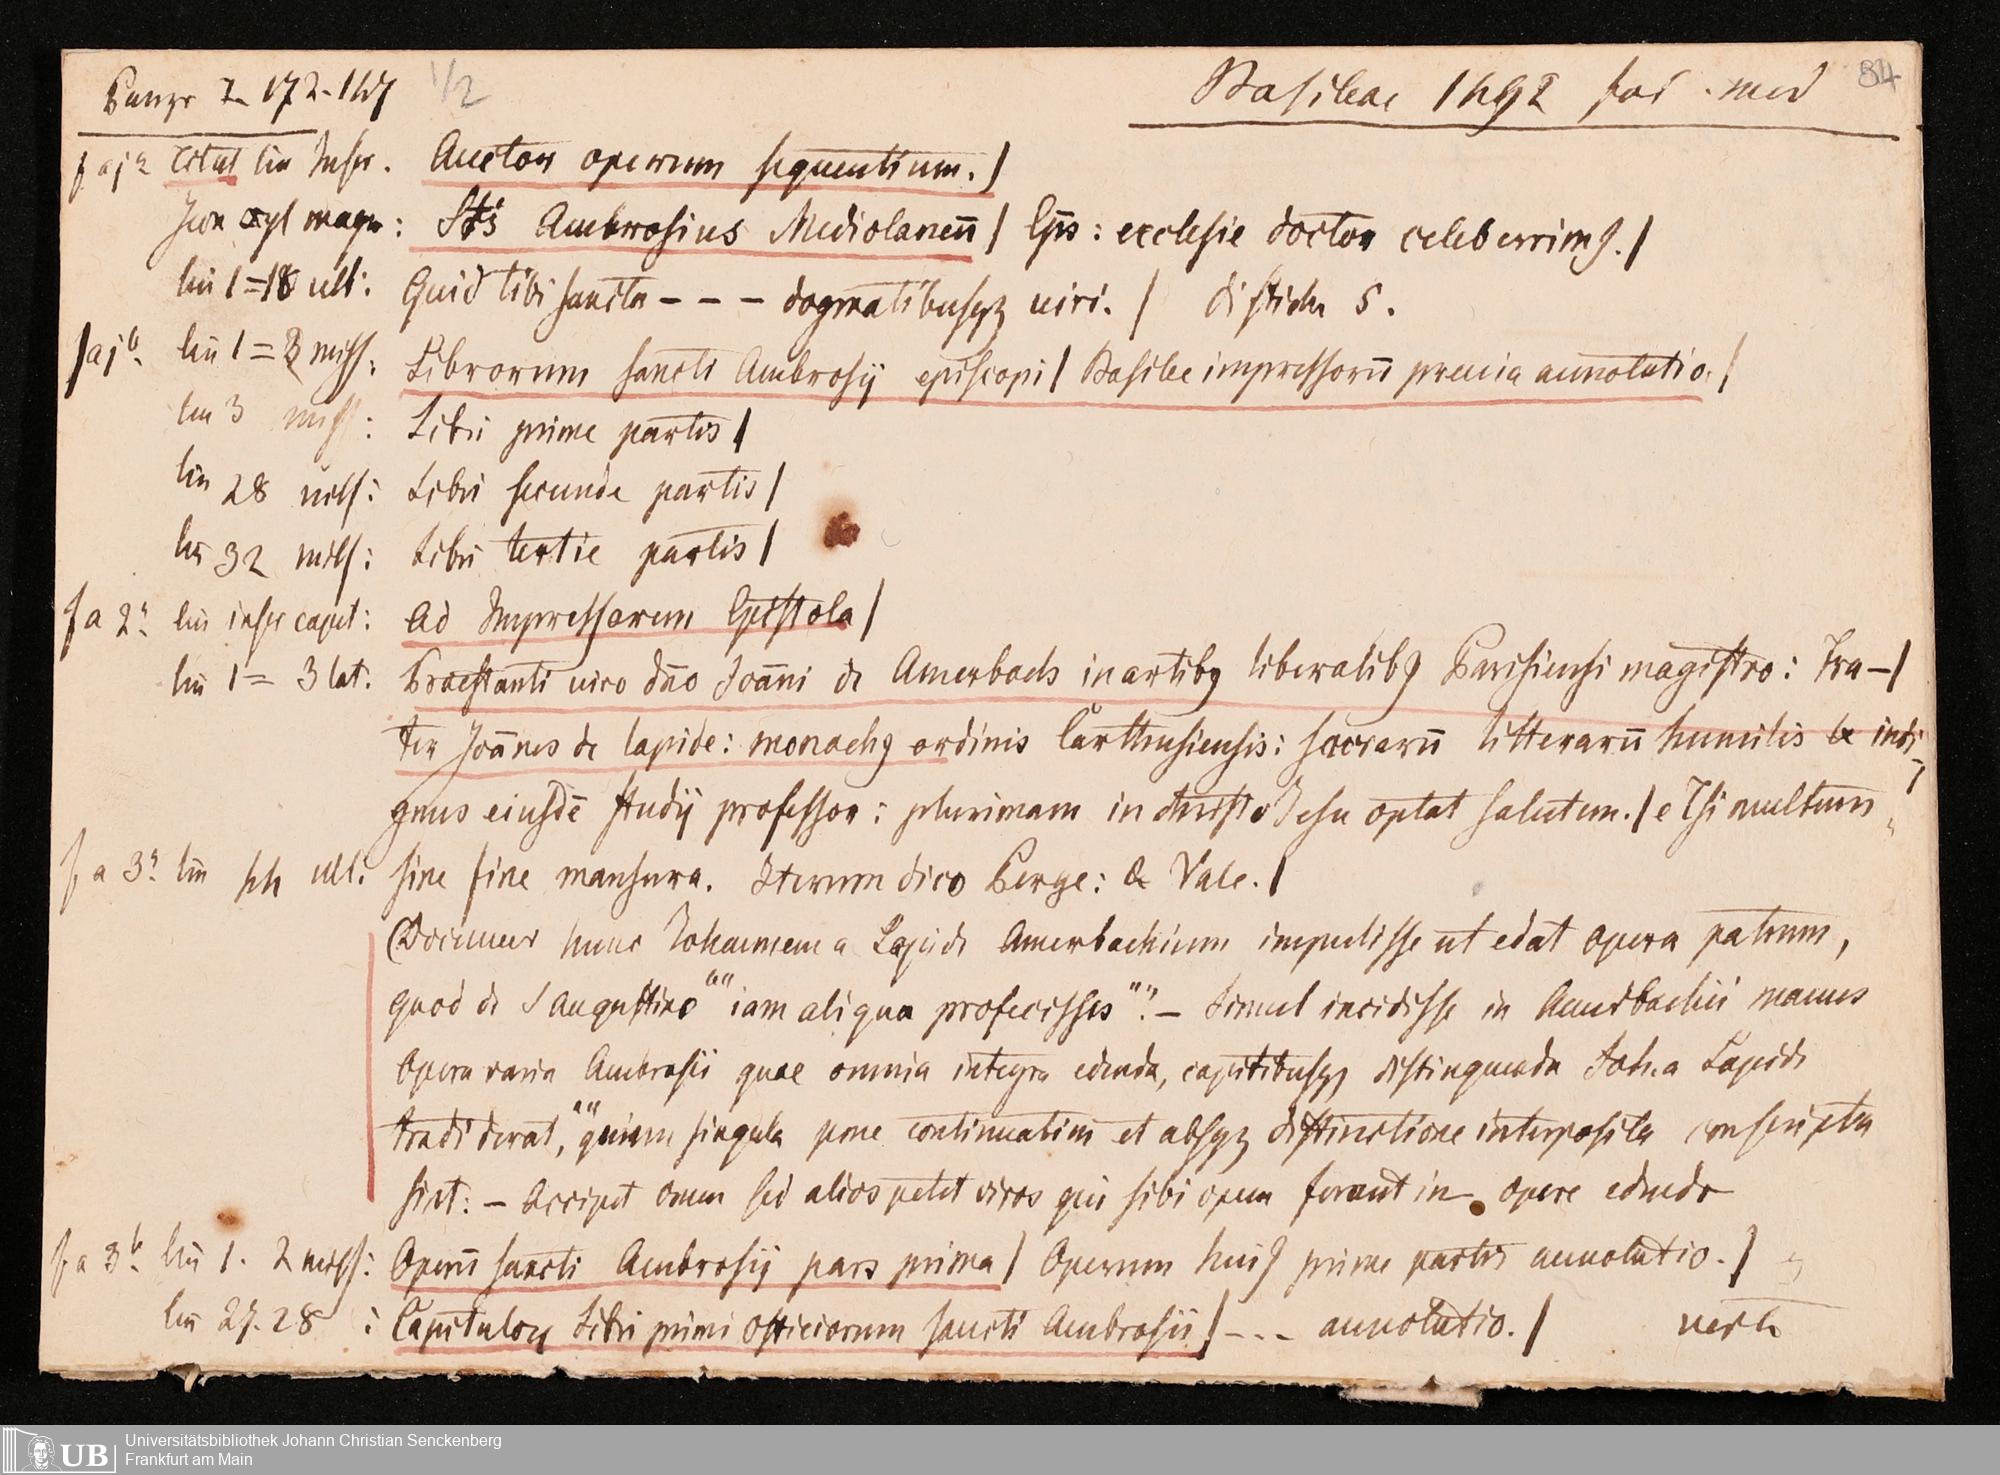 Panzr 7. 172. 147 1/2 Basileae 1492 fol. med 84
f aj a titul lin super. Auctor operum sequentium. /
Icon xyl magn: Sts Ambrosius Mediolaneñ / Eps: ecclesie doctor celeberrimꝰ. /
lin 1=18 ult: Quid tibi sancta - - - dogmatibusqꝫ uiri. / disticha 5.
f aj b. lin 1=3 miss: Librorum sancti Ambrosij episcopi / Basilee impressorū previa annotatio. /
lin 3 miss: Libri prime partis /
lin 28 miss: Libri secunde partis /
lin 32 miss: Libri tertie partis /
f a 2 a. lin super caput: Ad Impressorem Epistola /
lin 1= 3 lat. Praestanti uiro dño Joāni de Amerbach in artibꝰ liberalibꝰ Parisiensi magistro: Fra- /
ter Joānes de lapide: monachꝰ ordinis Carthusiensis: sacrarū litterarū humilis & indi-
gnus eiusdē studij professor: plurimam in christo Jesu optat salutem. / eTsi multum
f a 3 a. lin ult: sine fine mansura. Iterum dico Perge: & Vale. /
(Docemur hunc Johannem a Lapide Amerbachium impulisse ut edat opera patrum,
quod de S Augustino "iam aliqua profecisses". - Simul incidisse in Amerbachii manus
opera varia Ambrosii quae omnia integra edenda, capitibusqꝫ distinguenda Joh. a Lapide
tradiderat, "quum singula pene continuatim et absqꝫ distinctione interposita conscripta
sint: - Accipit onus sed alios petit viros qui sibi opem ferant in opere edendo
f a 3 b. lin 1. 2 miss: Operū sancti Ambrosij pars prima / Operum huiꝰ prime partis annotatio. /
lin 27. 28 : Capitulorꝝ Libri primi officiorum sancti Ambrosii / - - - annotatio. / verte
UB Universitätsbibliothek Johann Christian Senckenberg
Frankfurt am Main